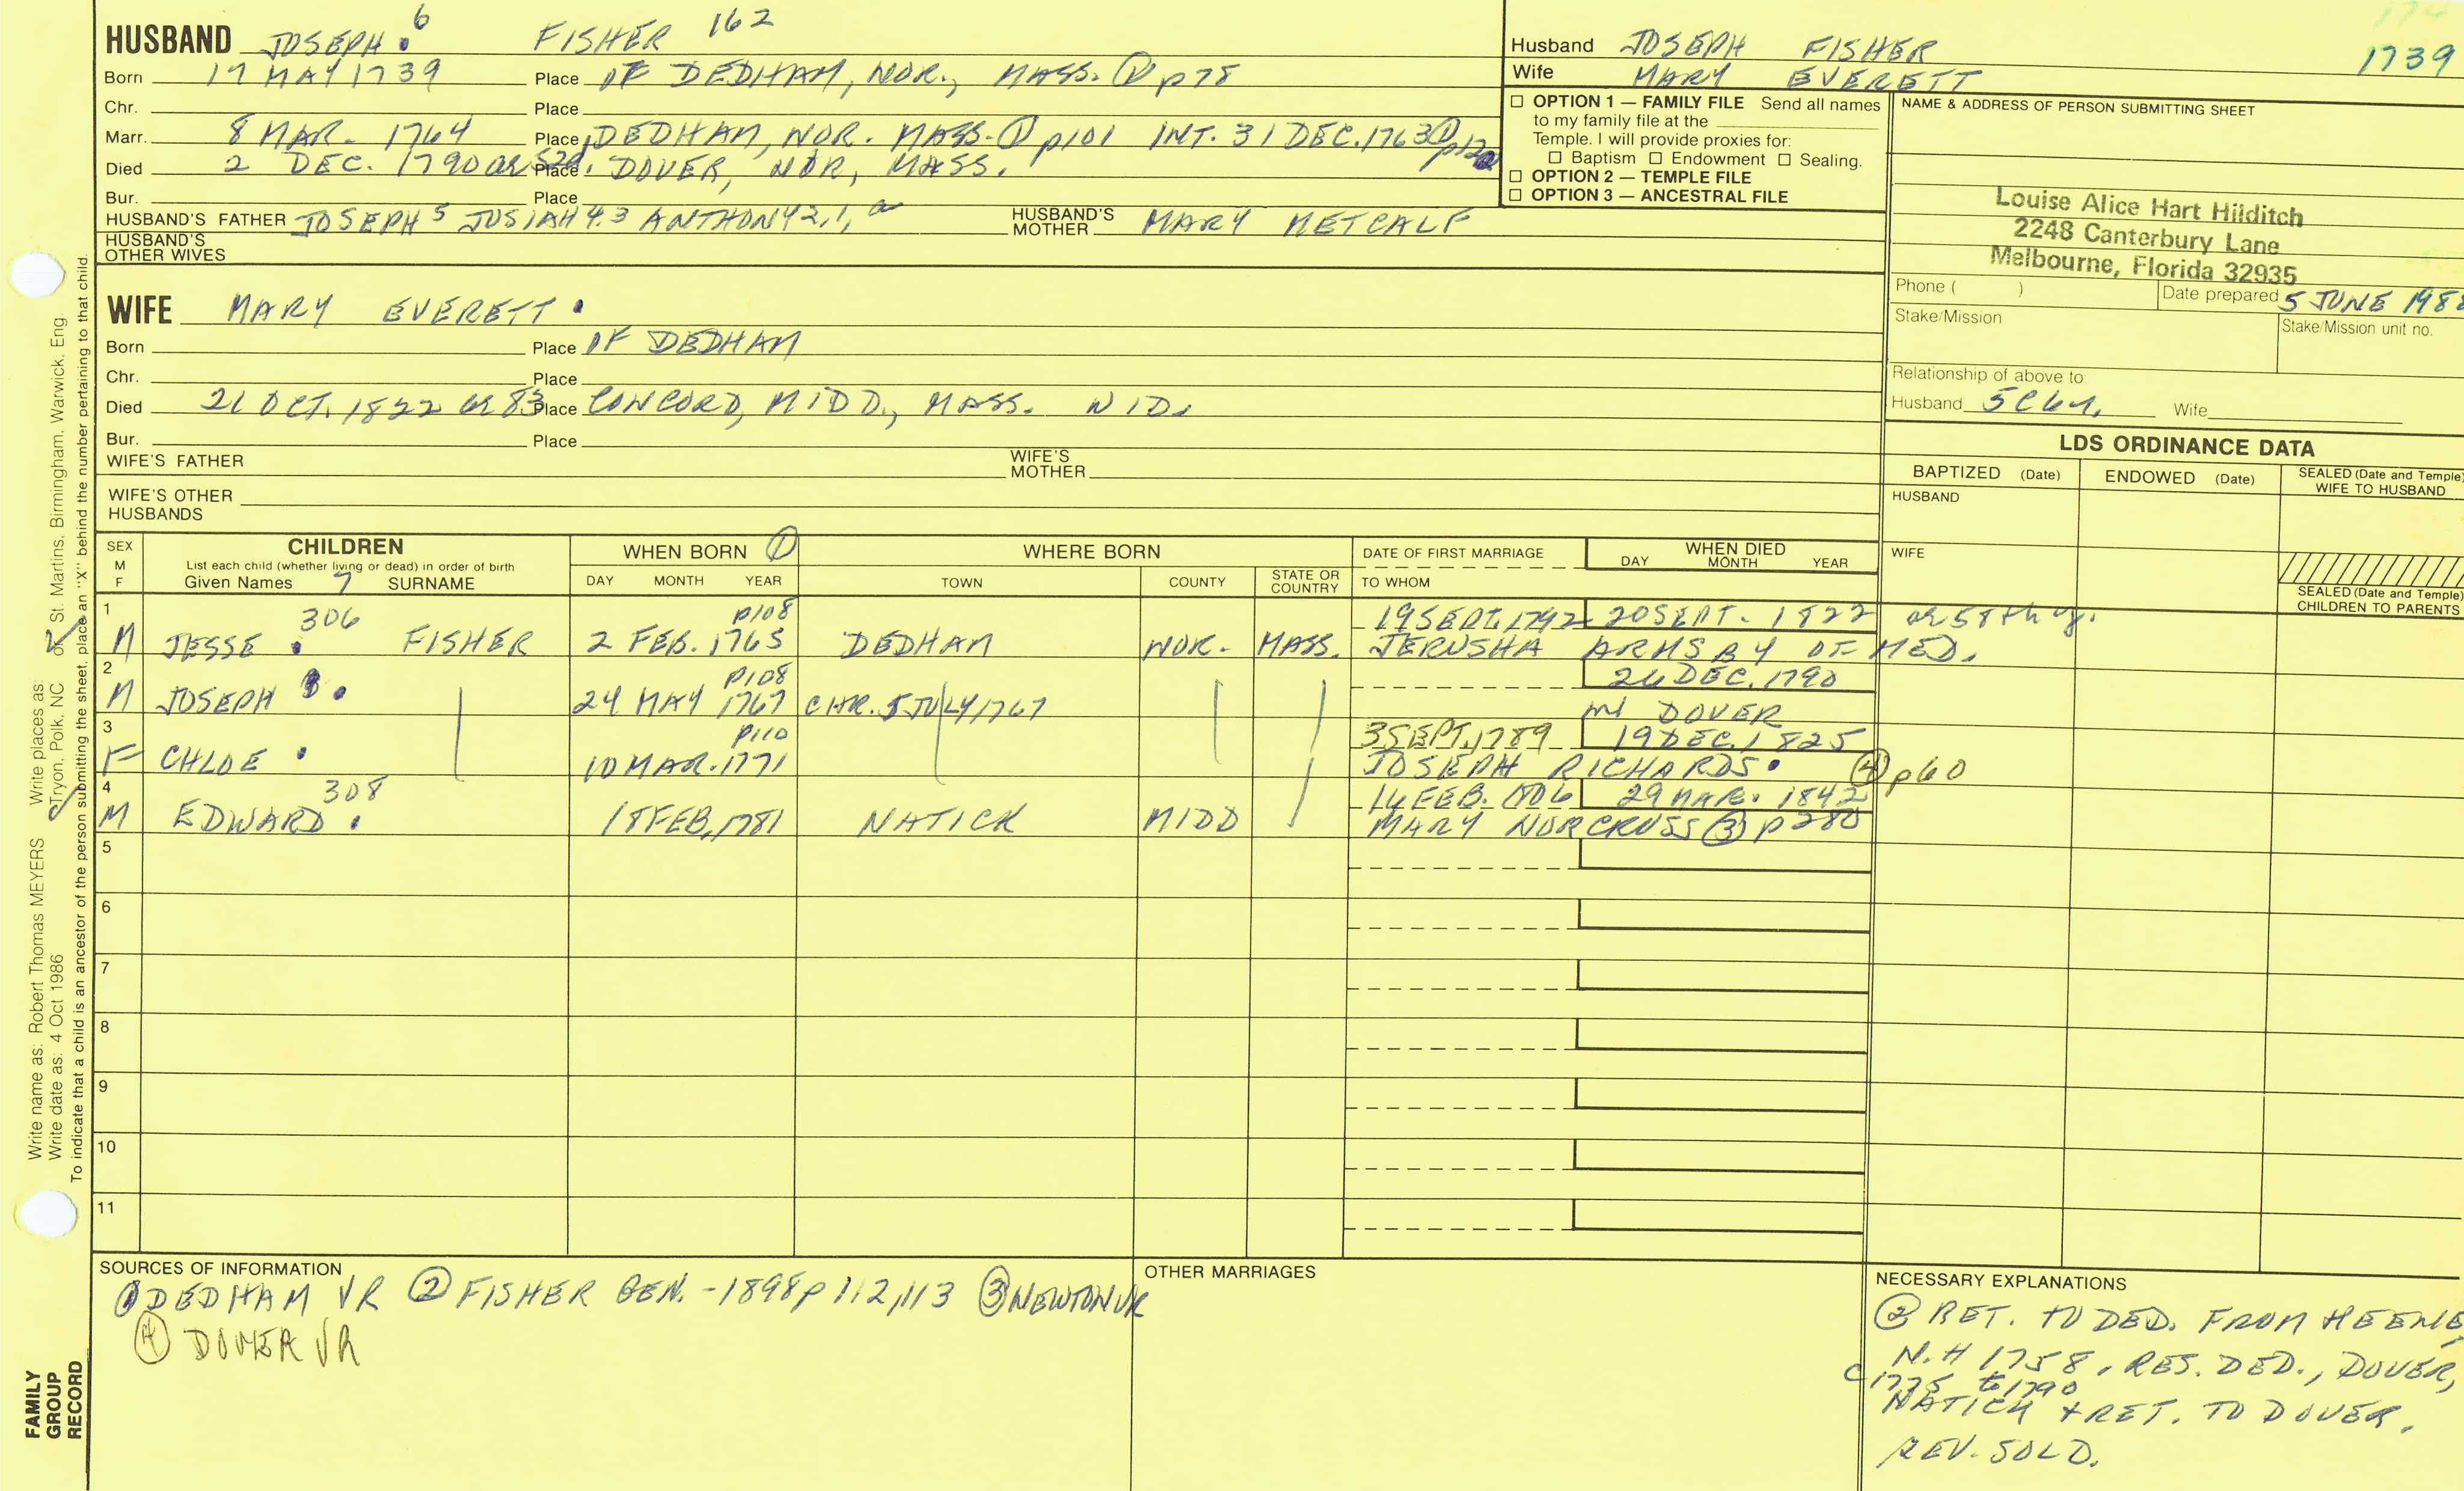 HUSBAND JOSEPH 6 FISHER 162
Born 17 MAY 1739 Place OF DEDHAM, NOR., MASS. ① p78
Chr. Place
Marr. 8 MAR. 1764 Place DEDHAM, NOR. MASS. ① p101 INT. 31 DEC. 1763 ①
Died 2 DEC. 1790 ae 52y. Place DOVER, NOR, MASS.
Bur. Place
HUSBAND'S FATHER JOSEPH 5 JOSIAH 4.3 ANTHONY 2,1, HUSBAND'S MOTHER MARY METCALF
HUSBAND'S OTHER WIVES
Husband JOSEPH FISHER
Wife MARY EVERETT
1739
☐ OPTION 1 — FAMILY FILE Send all names
to my family file at the
Temple. I will provide proxies for:
☐ Baptism ☐ Endowment ☐ Sealing.
☐ OPTION 2 — TEMPLE FILE
☐ OPTION 3 — ANCESTRAL FILE
NAME & ADDRESS OF PERSON SUBMITTING SHEET
Louise Alice Hart Hilditch
2248 Canterbury Lane
Melbourne, Florida 32935
Phone ( ) Date prepared 5 JUNE
Stake/Mission Stake/Mission unit no.
Relationship of above to:
Husband 5C6r. Wife
WIFE MARY EVERETT
Born Place OF DEDHAM
Chr. Place
Died 21 OCT. 1822 ae 83 Place CONCORD, MIDD., MASS. WID.
Bur. Place
WIFE'S FATHER WIFE'S MOTHER
WIFE'S OTHER HUSBANDS
LDS ORDINANCE DATA
BAPTIZED (Date) ENDOWED (Date) SEALED (Date and Temple) WIFE TO HUSBAND
HUSBAND
WIFE
SEALED (Date and Temple) CHILDREN TO PARENTS
SEX M F
CHILDREN
List each child (whether living or dead) in order of birth
Given Names 7 SURNAME
WHEN BORN ①
DAY MONTH YEAR
WHERE BORN
TOWN COUNTY STATE OR COUNTRY
DATE OF FIRST MARRIAGE
TO WHOM
WHEN DIED
DAY MONTH YEAR
1 306 p108 19 SEPT. 1792 20 SEPT. 1822 ae 58th y.
M JESSE FISHER 2 FEB. 1765 DEDHAM NOR. MASS. JERUSHA ARMSBY OF MED.
2 p108 26 DEC. 1790
M JOSEPH 24 MAY 1767 CHR. 5 JULY 1767 in DOVER
3 p110 3 SEPT. 1789 19 DEC. 1825
F CHLOE 10 MAR. 1771 JOSEPH RICHARDS ④ p60
4 308 FEB. 1806 29 MAR. 1842
M EDWARD 18 FEB. 1781 NATICK MIDD MARY NORCROSS ③ p280
5
6
7
8
9
10
11
SOURCES OF INFORMATION
① DEDHAM VR ② FISHER GEN. - 1898 p 112,113 ③ NEWTON VR
④ DOVER VR
OTHER MARRIAGES
NECESSARY EXPLANATIONS
② RET. TO DED. FROM KEENE,
N.H 1758, RES. DED., DOVER,
c 1775 to 1790
NATICK + RET. TO DOVER.
REV. SOLD.
Write name as: Robert Thomas MEYERS Write places as: Tryon, Polk, NC or St. Martins, Birmingham, Warwick, Eng
Write date as: 4 Oct 1986
To indicate that a child is an ancestor of the person submitting the sheet, place an "X" behind the number pertaining to that child.
FAMILY
GROUP
RECORD